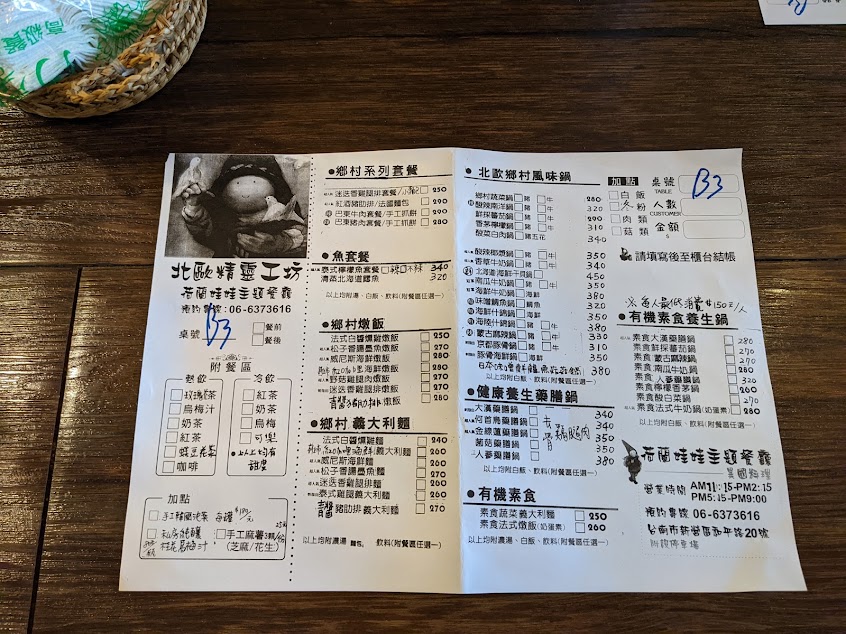 高級餐
北歐精靈工坊
荷蘭娃娃主題餐廳
預約專線：06-6373616
桌號 B3
餐前
餐後
附餐區
熱飲
玫瑰花茶
烏梅汁
奶茶
紅茶
咖啡
冷飲
紅茶
奶茶
烏梅汁
可樂
以上均有
甜度
加點
手工麻薯
(芝麻/花生)
●鄉村系列套餐
迷迭香雞腿排套餐 250
紅酒豬肋排/法國麵包 290
巴東牛肉套餐/手工抓餅 280
巴東豬肉套餐/手工抓餅 280
●魚套餐
泰式檸檬魚套餐 辣 不辣 340
清蒸北海道鱈魚 320
以上均附湯、白飯、飲料(附餐區任選一)
●鄉村燉飯
法式白醬燻雞燉飯 250
松子香腸墨魚燉飯 270
威尼斯海鮮燉飯 280
海鮮燉飯 280
野菇雞腿燉飯 270
迷迭香雞腿排燉飯 260
青醬豬肋排燉飯 280
●鄉村 義大利麵
法式白醬燻雞麵 240
威尼斯海鮮麵
松子香腸墨魚麵
迷迭香雞腿排麵
泰式雞腿義大利麵
青醬豬肋排義大利麵 270
以上均附濃湯 麵包 飲料(附餐區任選一)
●北歐鄉村風味鍋
鄉村蔬菜鍋 豬 牛 280
酸辣南洋鍋 豬 牛 320
鮮採番茄鍋 豬 牛 290
香茅檸檬鍋 豬 牛 310
酸菜白肉鍋 豬五花 340
酸辣椰漿鍋 豬 牛 350
香草牛奶鍋 豬 牛 340
北海道海鮮干貝鍋 450
南瓜牛奶鍋 豬 牛 350
海鮮牛奶鍋 海鮮 380
味噌鯛魚鍋 鯛魚 320
海鮮什錦鍋 350
海陸什錦鍋 豬 牛 380
蒙古麻辣鍋 豬 牛 330
京都豚骨鍋 豬 牛 310
豚骨海鮮鍋 350
380
以上均附白飯、飲料(附餐區任選一)
●健康養生藥膳鍋
大漢藥膳鍋 340
何首烏藥膳鍋 340
金線蓮藥膳鍋 350
菌菇藥膳鍋 350
人蔘藥膳鍋 380
去骨雞腿肉
以上均附白飯、飲料(附餐區任選一)
●有機素食
素食蔬菜義大利麵 250
素食法式燉飯(奶蛋素) 260
以上均附濃湯、白飯、飲料(附餐區任選一)
加點
白飯
冬粉
肉類
菇類
桌號 B3
TABLE
人數
CUSTOMER
金額
$
請填寫後至櫃台結帳
※每人最低消費$150元/人
●有機素食養生鍋
素食大漢藥膳鍋 280
素食鮮採蕃茄鍋 270
素食蒙古麻辣鍋
素食南瓜牛奶鍋 280
素食人蔘藥膳鍋 320
素食檸檬香茅鍋 260
素食酸白菜鍋 270
素食法式牛奶鍋(奶蛋素) 280
以上均附白飯、飲料(附餐區任選一)
荷蘭娃娃主題餐廳
異國料理
營業時間 AM11:15-PM2:15
PM5:15-PM9:00
預約專線 06-6373616
台南市新營區西平路20號
附設停車場